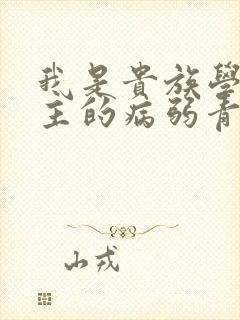 我是貴族學
主的病弱青
山戎